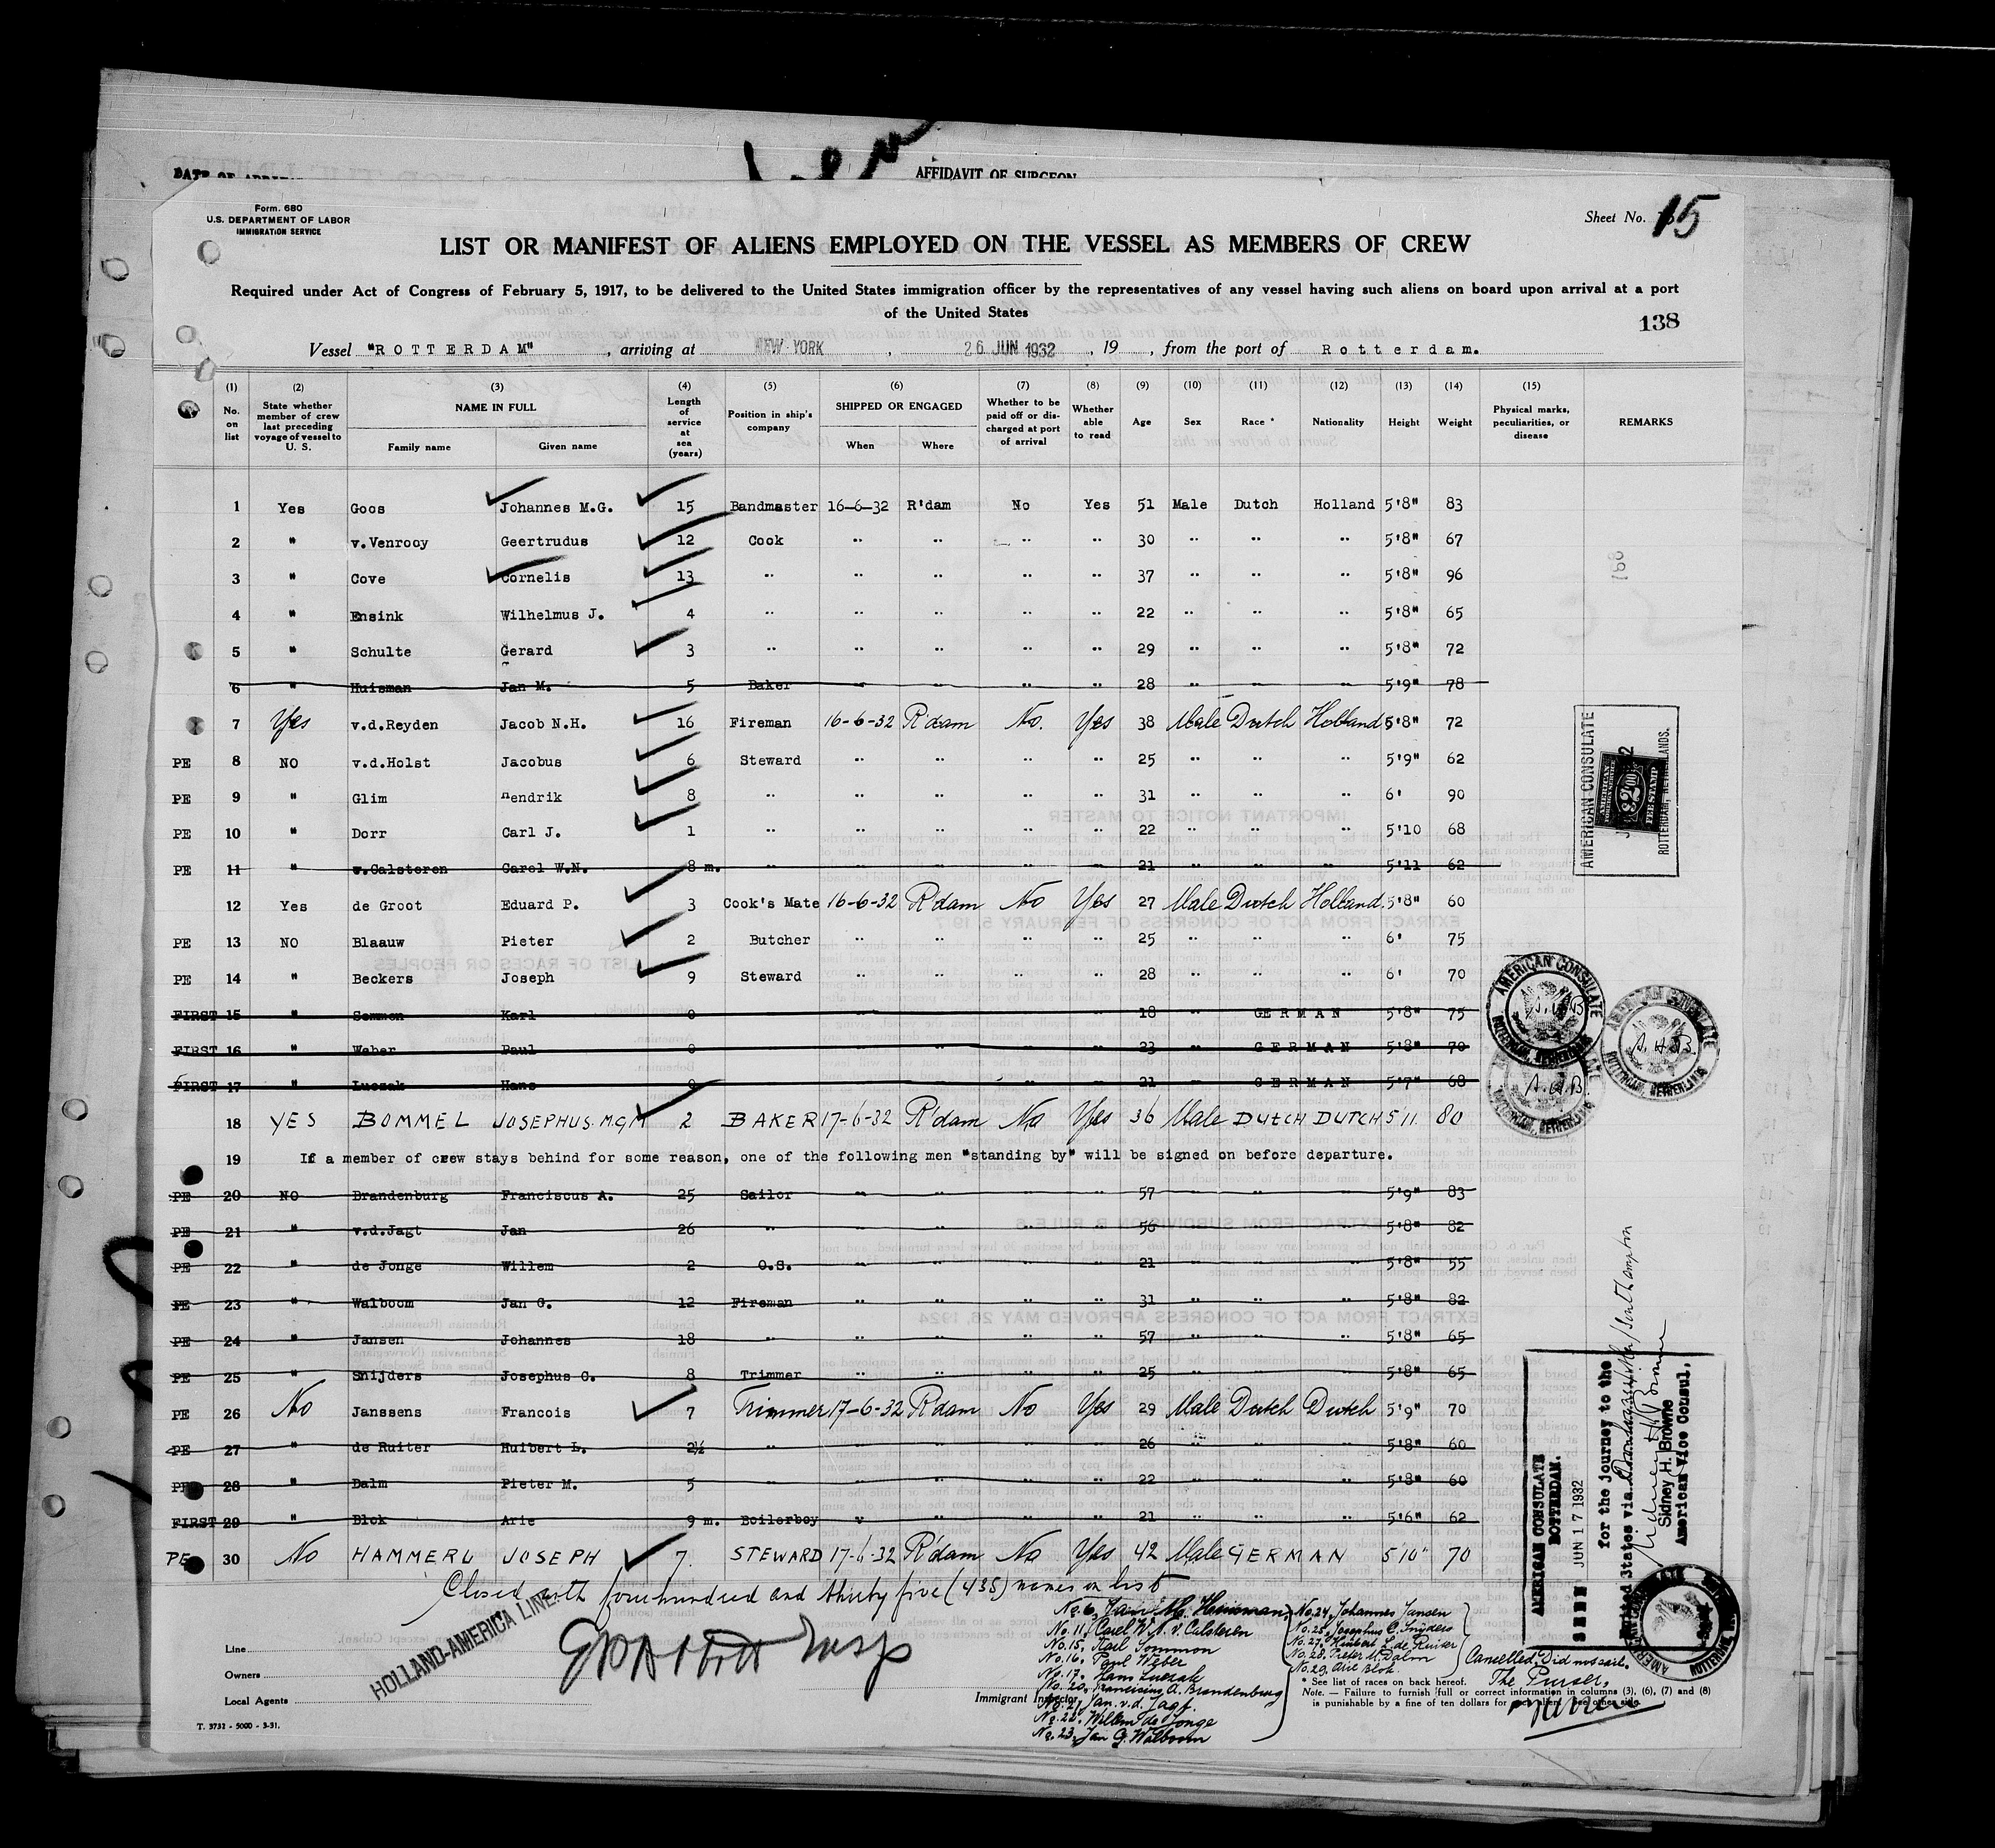 AFFIDAVIT OF SURGEON
Form. 680
U.S. DEPARTMENT OF LABOR
IMMIGRATION SERVICE
Sheet No. 15
LIST OR MANIFEST OF ALIENS EMPLOYED ON THE VESSEL AS MEMBERS OF CREW
Required under Act of Congress of February 5, 1917, to be delivered to the United States immigration officer by the representatives of any vessel having such aliens on board upon arrival at a port
of the United States
138
Vessel "ROTTERDAM", arriving at NEW YORK, 26 JUN 1932, 19 , from the port of Rotterdam.
(1) No. on list (2) State whether member of crew last preceding voyage of vessel to U. S. (3) NAME IN FULL Family name Given name (4) Length of service at sea (years) (5) Position in ship's company (6) SHIPPED OR ENGAGED When Where (7) Whether to be paid off or discharged at port of arrival (8) Whether able to read (9) Age (10) Sex (11) Race * (12) Nationality (13) Height (14) Weight (15) Physical marks, peculiarities, or disease REMARKS
1 Yes Goos Johannes M.G. 15 Bandmaster 16-6-32 R'dam No Yes 51 Male Dutch Holland 5'8" 83
2 " v.Venrooy Geertrudus 12 Cook " " " " 30 " " " 5'8" 67
3 " Cove Cornelis 13 " " " " " 37 " " " 5'8" 96
4 " Ensink Wilhelmus J. 4 " " " " " 22 " " " 5'8" 65
5 " Schulte Gerard 3 " " " " " 29 " " " 5'8" 72
6 " Huisman Jan M. 5 Baker " " " " 28 " " " 5'9" 78
7 Yes v.d.Reyden Jacob N.H. 16 Fireman 16-6-32 R'dam No. Yes 38 Male Dutch Holland 5'8" 72
PE 8 NO v.d.Holst Jacobus 6 Steward " " " " 25 " " " 5'9" 62
PE 9 " Glim Hendrik 8 " " " " " 31 " " " 6' 90
PE 10 " Dorr Carl J. 1 " " " " " 22 " " " 5'10 68
PE 11 " v.Calsteren Carel W.N. 8 m. " " " " " 21 " " " 5'11 62
12 Yes de Groot Eduard P. 3 Cook's Mate 16-6-32 R'dam No Yes 27 Male Dutch Holland 5'8" 60
PE 13 NO Blaauw Pieter 2 Butcher " " " " 25 " " " 6' 75
PE 14 " Beckers Joseph 9 Steward " " " " 28 " " " 6' 70
FIRST 15 " Sommon Karl 0 " " " " 18 " GERMAN 5'8" 75
FIRST 16 " Weber Paul 0 " " " " 23 " GERMAN 5'8" 70
FIRST 17 " Luczak Hans 0 " " " " 21 " GERMAN 5'7" 68
18 YES BOMMEL JOSEPHUS. M.G.M 2 BAKER 17-6-32 R'dam No Yes 36 Male DUTCH DUTCH 5 11. 80
19 If a member of crew stays behind for some reason, one of the following men "standing by" will be signed on before departure.
PE 20 NO Brandenburg Franciscus A. 25 Sailor " " " " 57 " " " 5'9" 83
PE 21 " v.d.Jagt Jan 26 " " " " " 56 " " " 5'8" 82
PE 22 " de Jonge Willem 2 O.S. " " " " 21 " " " 5'8" 55
PE 23 " Walboom Jan G. 12 Fireman " " " " 31 " " " 5'8" 82
PE 24 " Jansen Johannes 18 " " " " " 57 " " " 5'8" 65
PE 25 " Snijders Josephus C. 8 Trimmer " " " " 25 " " " 5'8" 65
PE 26 No Janssens Francois 7 Trimmer 17-6-32 R'dam No Yes 29 Male Dutch Dutch 5'9" 70
PE 27 " de Ruiter Huibert L. 2½ " " " " " 26 " " " 5'8" 60
PE 28 " Dalm Pieter M. 5 " " " " " 22 " " " 5'8" 60
FIRST 29 " Blok Arie 9 m. Boilerboy " " " " 21 " " " 5'6" 62
PE 30 No HAMMERL JOSEPH 7. STEWARD 17-6-32 R'dam No Yes 42 Male GERMAN 5'10" 70
Closed with fourhundred and thirty five (435) names on list
AMERICAN CONSULATE
ROTTERDAM, NETHERLANDS.
AMERICAN CONSULATE ROTTERDAM, NETHERLANDS
A.H.B
AMERICAN CONSULATE
ROTTERDAM.
SEEN JUN 17 1932
for the journey to the
United States via Southampton
Sidney H. Browne
American Vice Consul,
No. 6, Jan M. Huisman,
No. 11, Carel W.N. v. Calsteren
No. 15, Karl Sommon
No. 16, Paul Weber
No. 17, Hans Luczak
No. 20, Franciscus A. Brandenburg
No. 21, Jan. v.d. Jagt.
No. 22, Willem de Jonge
No. 23, Jan G. Walboom
No. 24, Johannes Jansen
No. 25, Josephus C. Snijders
No. 27, Huibert L. de Ruiter
No. 28, Pieter M. Dalm
No. 29, Arie Blok.
Cancelled. Did not sail.
The Purser,
Line
Owners
Local Agents
HOLLAND-AMERICA LINE
Immigrant Inspector
* See list of races on back hereof.
Note. — Failure to furnish full or correct information in columns (3), (6), (7) and (8)
is punishable by a fine of ten dollars for each alien. See other side.
T. 3732 - 5000 - 3-31.